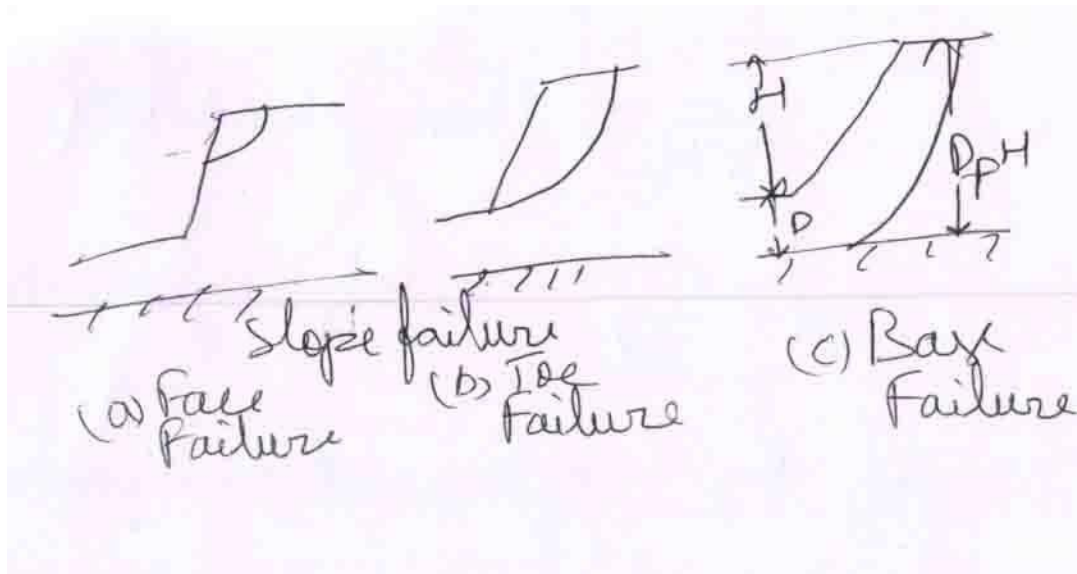 H
D
DpH
Slope failure
(a) Face
Failure
(b) Toe
Failure
(c) Base
Failure